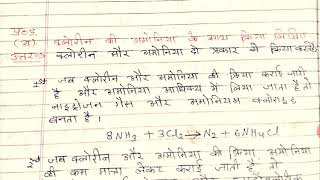 प्र०5
(अ) क्लोरीन की अमोनिया के साथ क्रिया लिखिए
उत्तर क्लोरीन और अमोनिया दो प्रकार से क्रिया करती
1st जब क्लोरीन और अमोनिया की क्रिया कराई जाती
है और अमोनिया आधिक्य में लिया जाता है तो
नाइट्रोजन गैस और अमोनियम क्लोराइड
बनता है।
8NH3 + 3Cl2 → N2 + 6NH4Cl
2nd जब क्लोरीन और अमोनिया की क्रिया अमोनिया
की कम मात्रा लेकर कराई जाती है तो